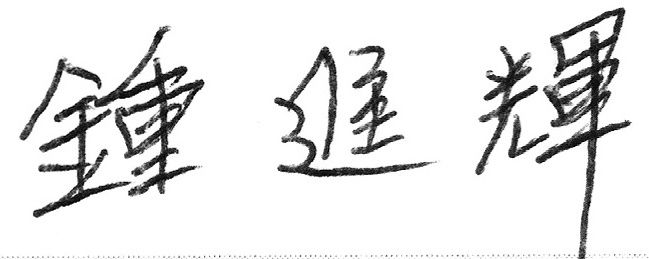 鍾進輝